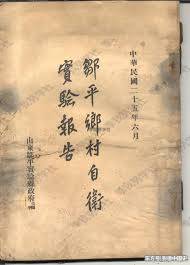 中華民國二十五年六月
鄒平鄉村自衛
實驗報告
山東鄒平實驗縣政府編